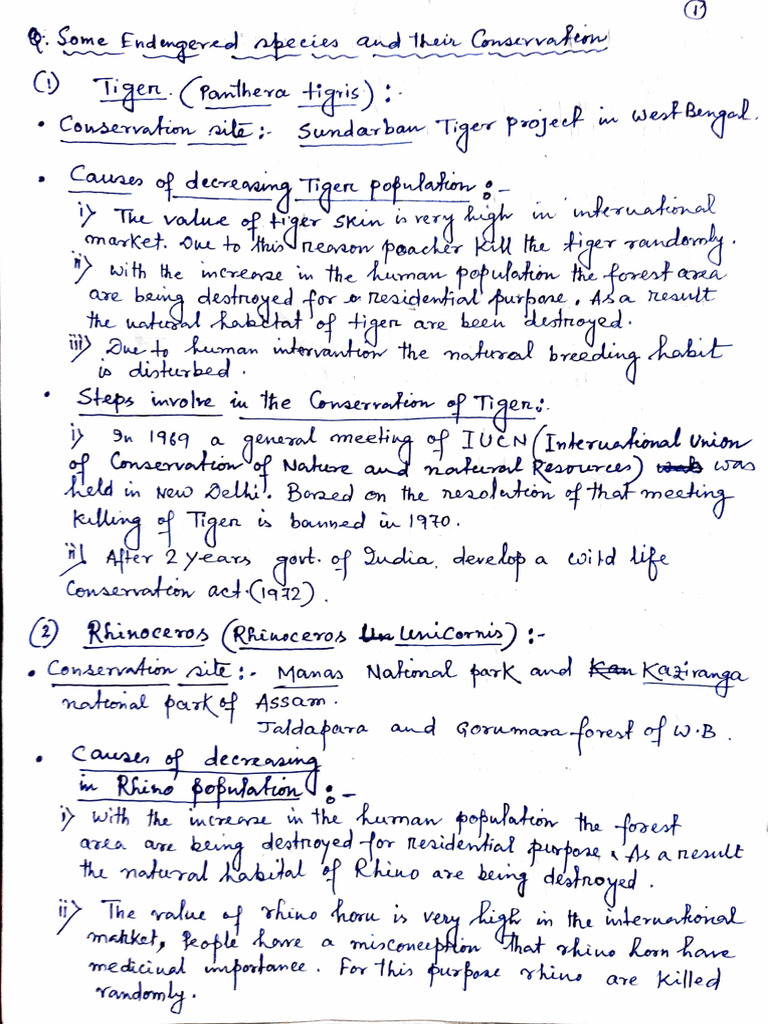 1
Q. Some Endangered species and their Conservation
(1) Tiger. (Panthera tigris) :-
• Conservation site :- Sundarban Tiger project in West Bengal.
• Causes of decreasing Tiger population :-
i) The value of tiger skin is very high in international
market. Due to this reason poacher kill the tiger randomly.
ii) With the increase in the human population the forest area
are being destroyed for residential purpose. As a result
the natural habitat of tiger are been destroyed.
iii) Due to human intervantion the natural breeding habit
is disturbed.
• Steps involve in the Conservation of Tiger :-
i) In 1969 a general meeting of IUCN (International Union
of Conservation of Nature and natural Resources) was
held in New Delhi. Borsed on the resolution of that meeting
killing of Tiger is banned in 1970.
ii) After 2 years govt. of India, develop a wild life
Conservation act. (1972).
(2) Rhinoceros (Rhinoceros Unicornis) :-
• Conservation site :- Manas National park and Kaziranga
national park of Assam.
Jaldapara and Gorumara forest of W.B.
• Causes of decreasing
in Rhino population :-
i) With the increase in the human population the forest
area are being destroyed for residential purpose. As a result
the natural habital of Rhino are being destroyed.
ii) The value of rhino horn is very high in the international
market, People have a misconception that rhino horn have
medicinal importance. For this purpose rhino are killed
randomly.